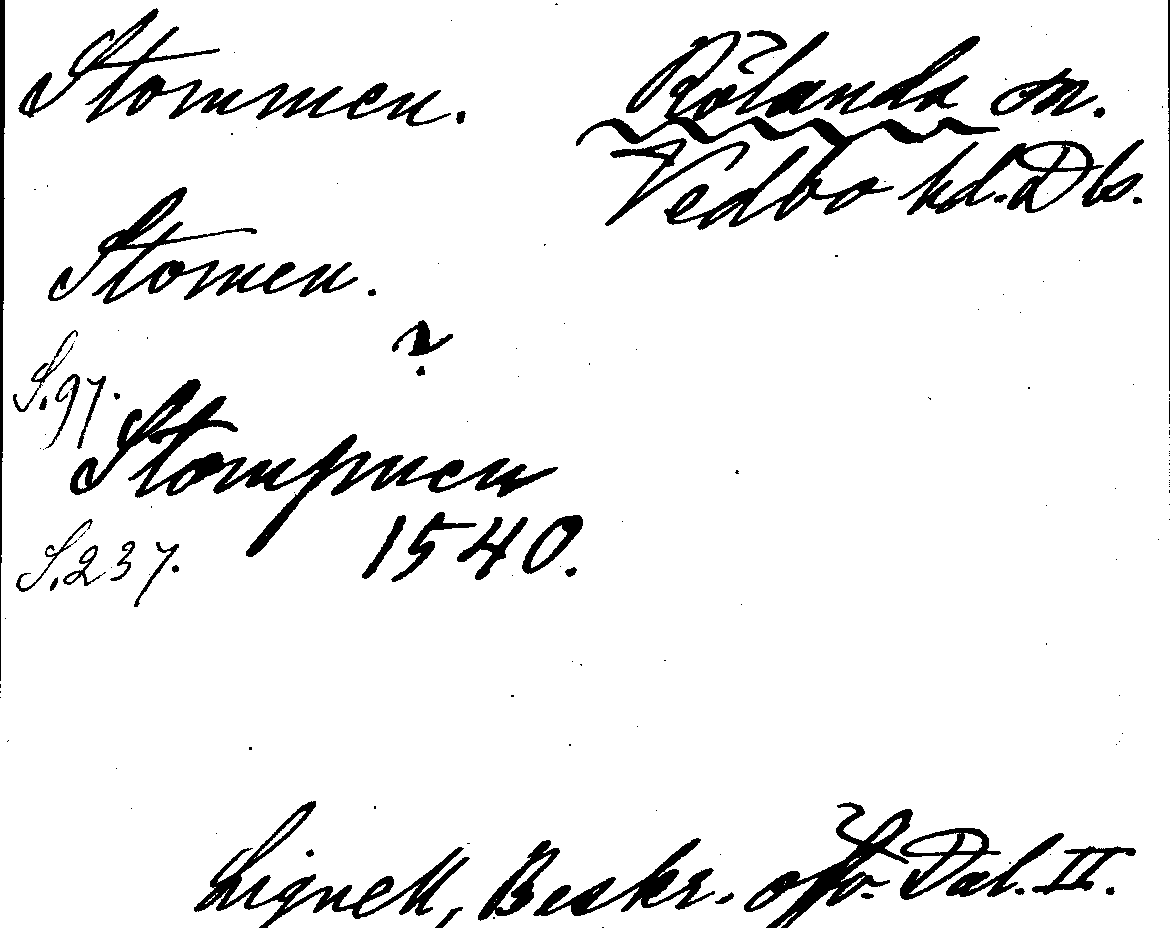 Stommen.
Rölanda sn.
Vedbo hd. Dls.
Stomen.
?
S. 97.
Stompnen
1540.
S. 237.
Lignell, Beskr. öfv. Dal. II.